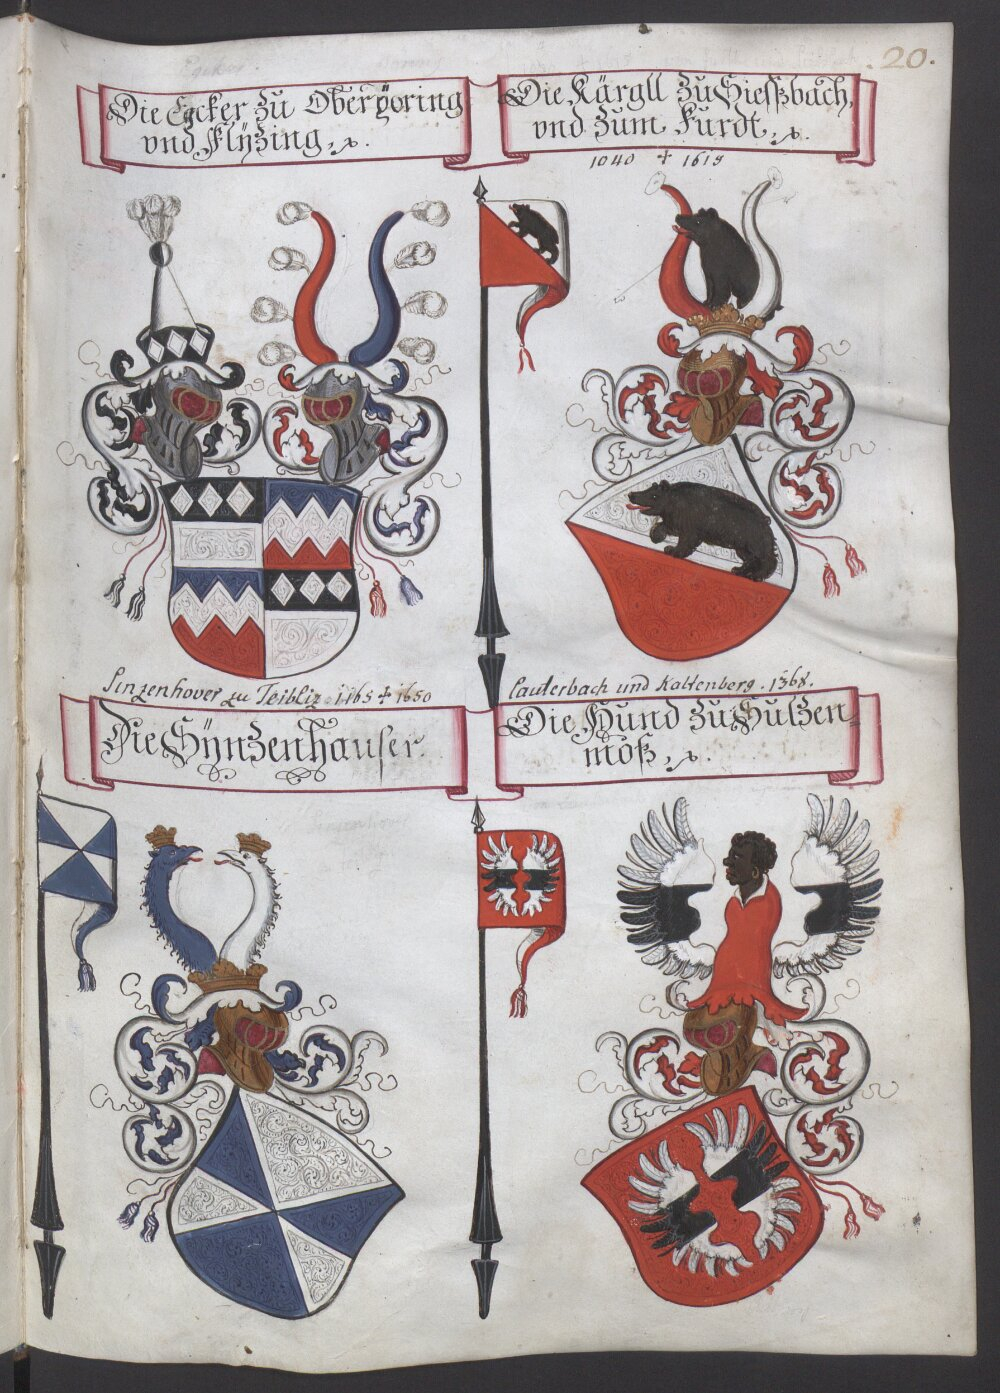 .20.
Die Ecker zu Oberpöring
vnd Klÿzing, ꝛ.
Die Kärgll zu Siesßbach,
vnd zum Furdt, ꝛ.
1040 + 1619
Sinzenhover zu Teibliz 1465 + 1650
Die Sÿnzenhauser
Lauterbach und Kaltenberg. 1368.
Die Hund zu Sulzen
möß, ꝛ.